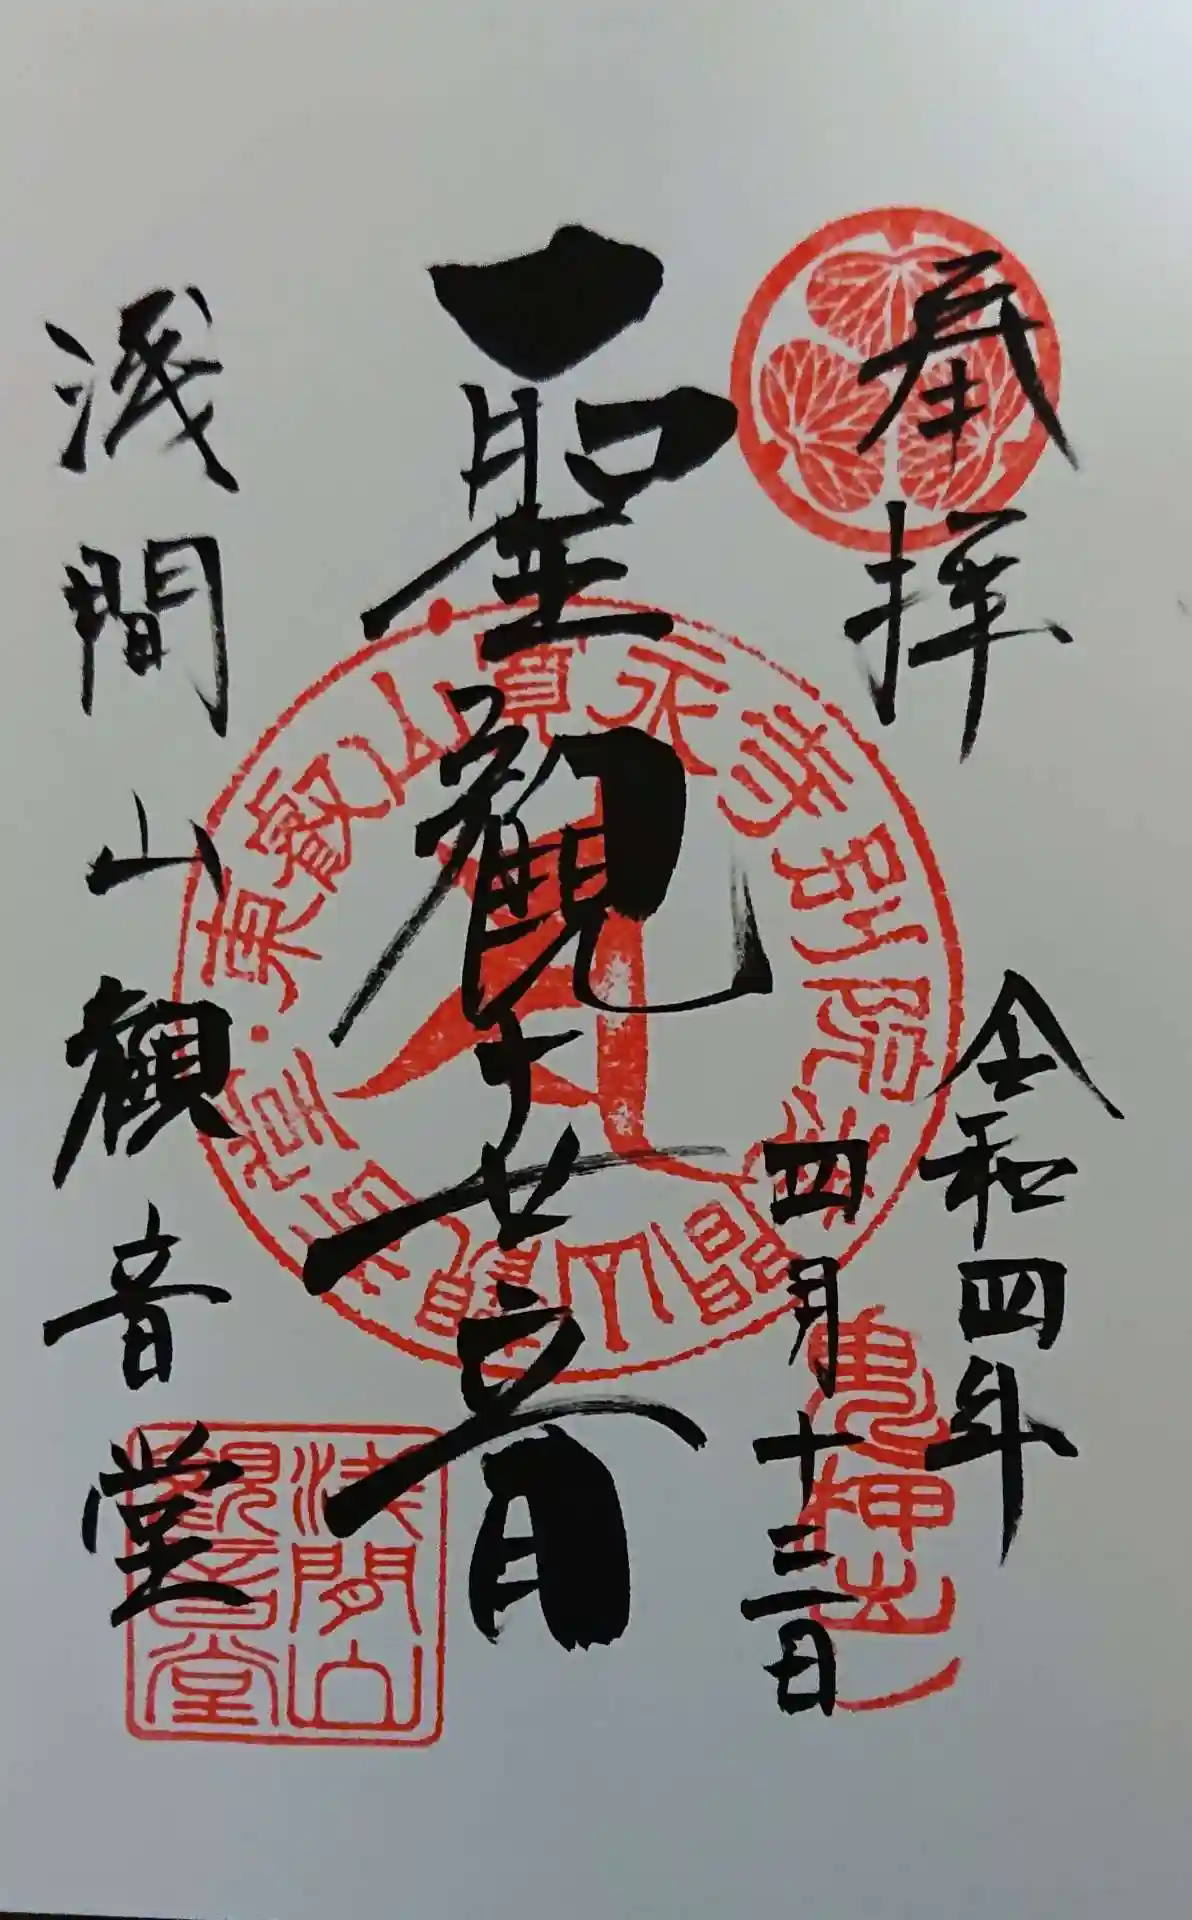 奉拝
令和四年
四月十三日
鬼押出し
聖観世音
東叡山寛永寺別院浅間山観音堂
浅間山観音堂
浅間山
観音堂